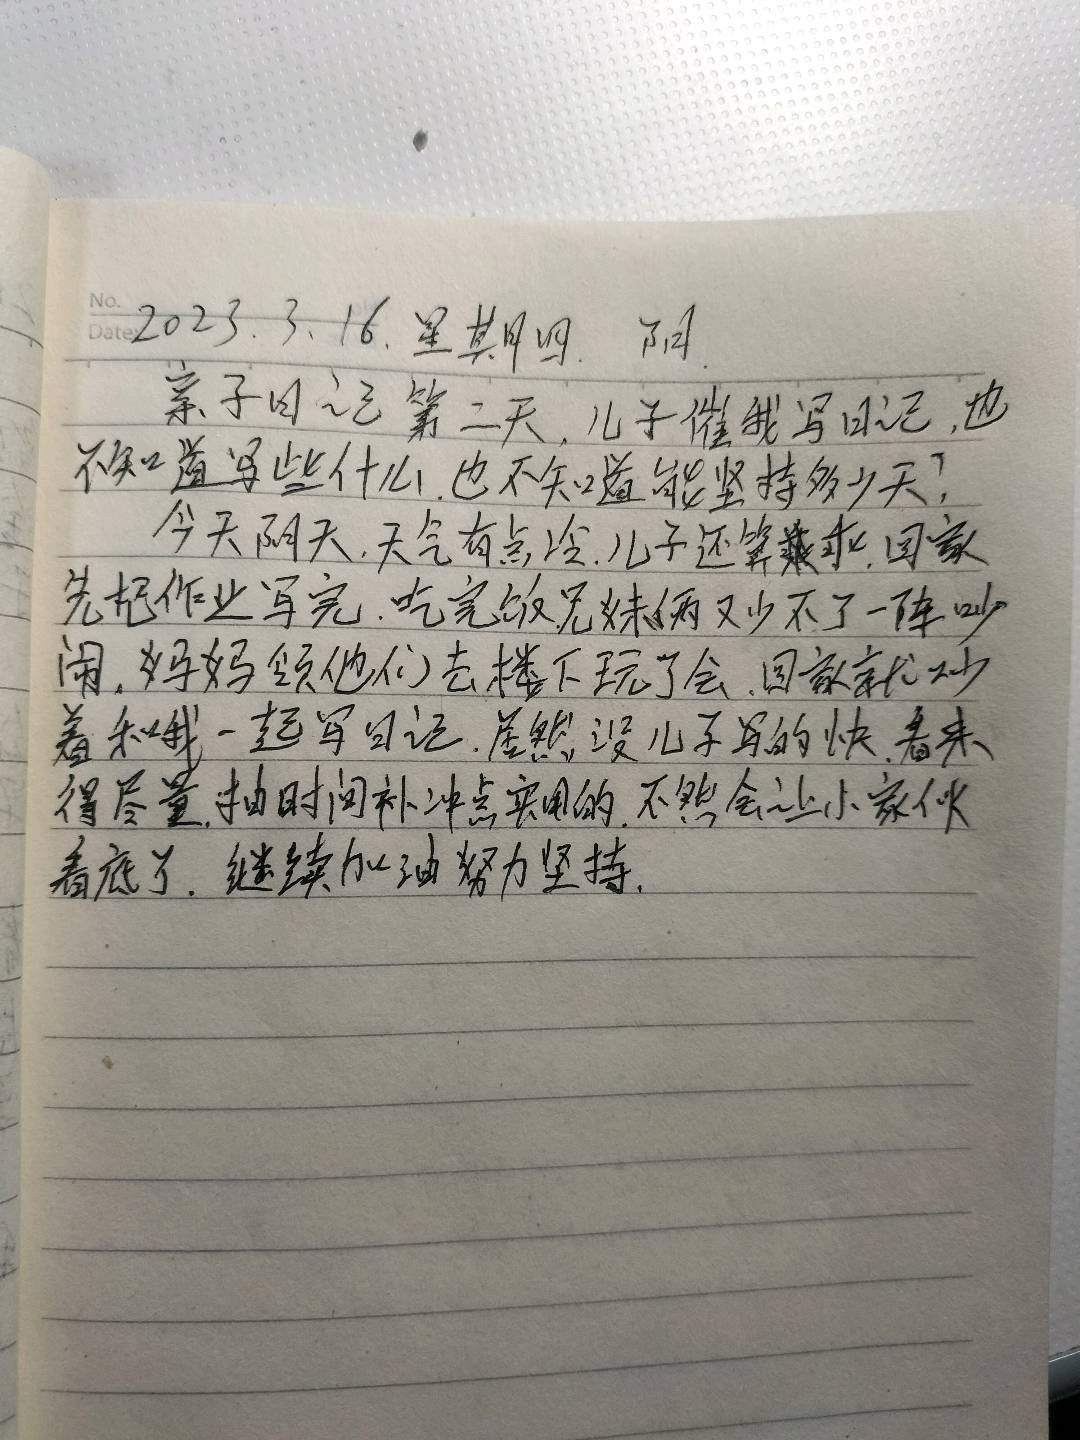 No.
Date: 2023.3.16. 星期四. 阴.
亲子日记第二天,儿子催我写日记,也
不知道写些什么,也不知道能坚持多少天?
今天阴天,天气有点冷.儿子还算,回家
先把作业写完.吃完饭兄妹俩又少不了一阵吵
闹,妈妈领他们去楼下玩了会,回家就吵
着和我一起写日记.居然没儿子写的快.看来
得尽量抽时间补冲点实用的.不然会让小家伙
看底了.继续加油努力坚持.